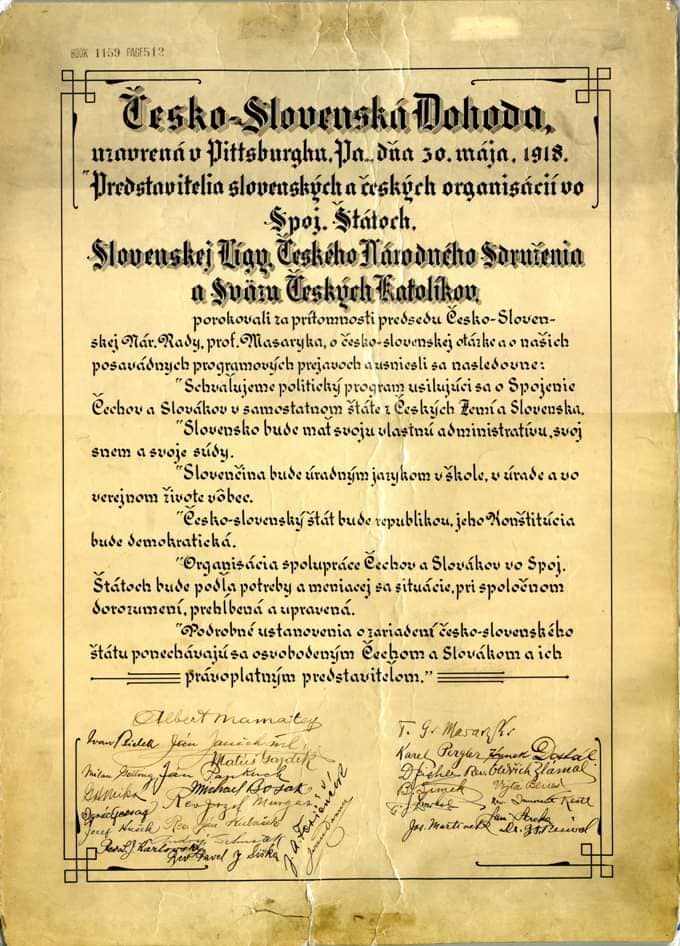 BOOK 1159 PAGE512
Česko-Slovenská Dohoda,
uzavrená v Pittsburghu, Pa., dňa 30. mája, 1918.
"Predstavitelia slovenských a českých organisácií vo
Spoj. Štátoch,
Slovenskej Ligy, Českého Národného Sdruženia
a Sväzu Českých Katolíkov,
porokovali za prítomnosti predsedu Česko-Sloven-
skej Nár. Rady, prof. Masaryka, o česko-slovenskej otázke a o našich
posavádnych programových prejavoch a usniesli sa nasledovne:
"Schvaľujeme politický program usilujúci sa o Spojenie
Čechov a Slovákov v samostatnom štáte z Českých Zemí a Slovenska.
"Slovensko bude mať svoju vlastnú administratívu, svoj
snem a svoje súdy.
"Slovenčina bude úradným jazykom v škole, v úrade a vo
verejnom živote vôbec.
"Česko-slovenský štát bude republikou, jeho Konštitúcia
bude demokratická.
"Organisácia spolupráce Čechov a Slovákov vo Spoj.
Štátoch bude podľa potreby a meniacej sa situácie, pri spoločnom
dorozumení, prehĺbená a upravená.
"Podrobné ustanovenia o zariadení česko-slovenského
štátu ponechávajú sa osvobodeným Čechom a Slovákom a ich
právoplatným predstaviteľom."
Albert Mamatey
Ivan Bielek Ján Janček ml.
Matúš Gazdík
Milan Getting Ján Pankuch
Michael Bosak
Rev Jozef Murgaš
Jozef Hušek Rev Ján Kubašek
Rev Pavel J Šiška
T. G. Masaryk
Karel Pergler Hynek Dostál
Rev. Oldřich Zlámal
B. Simek Vojta Beneš
Jos. Martinek